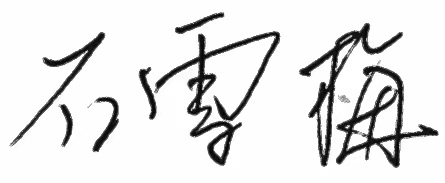 石雪梅